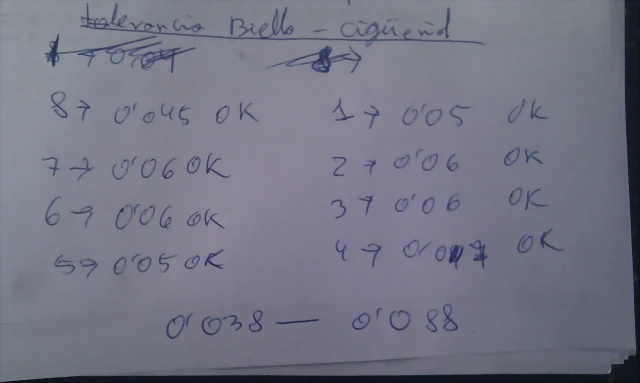 tolerancia Biella - cigüeñal
8→ 0'045 OK 1→ 0'05 OK
7→ 0'06 OK 2→ 0'06 OK
6→ 0'06 OK 3→ 0'06 OK
5→ 0'05 OK 4→ OK
0'038 — 0'088